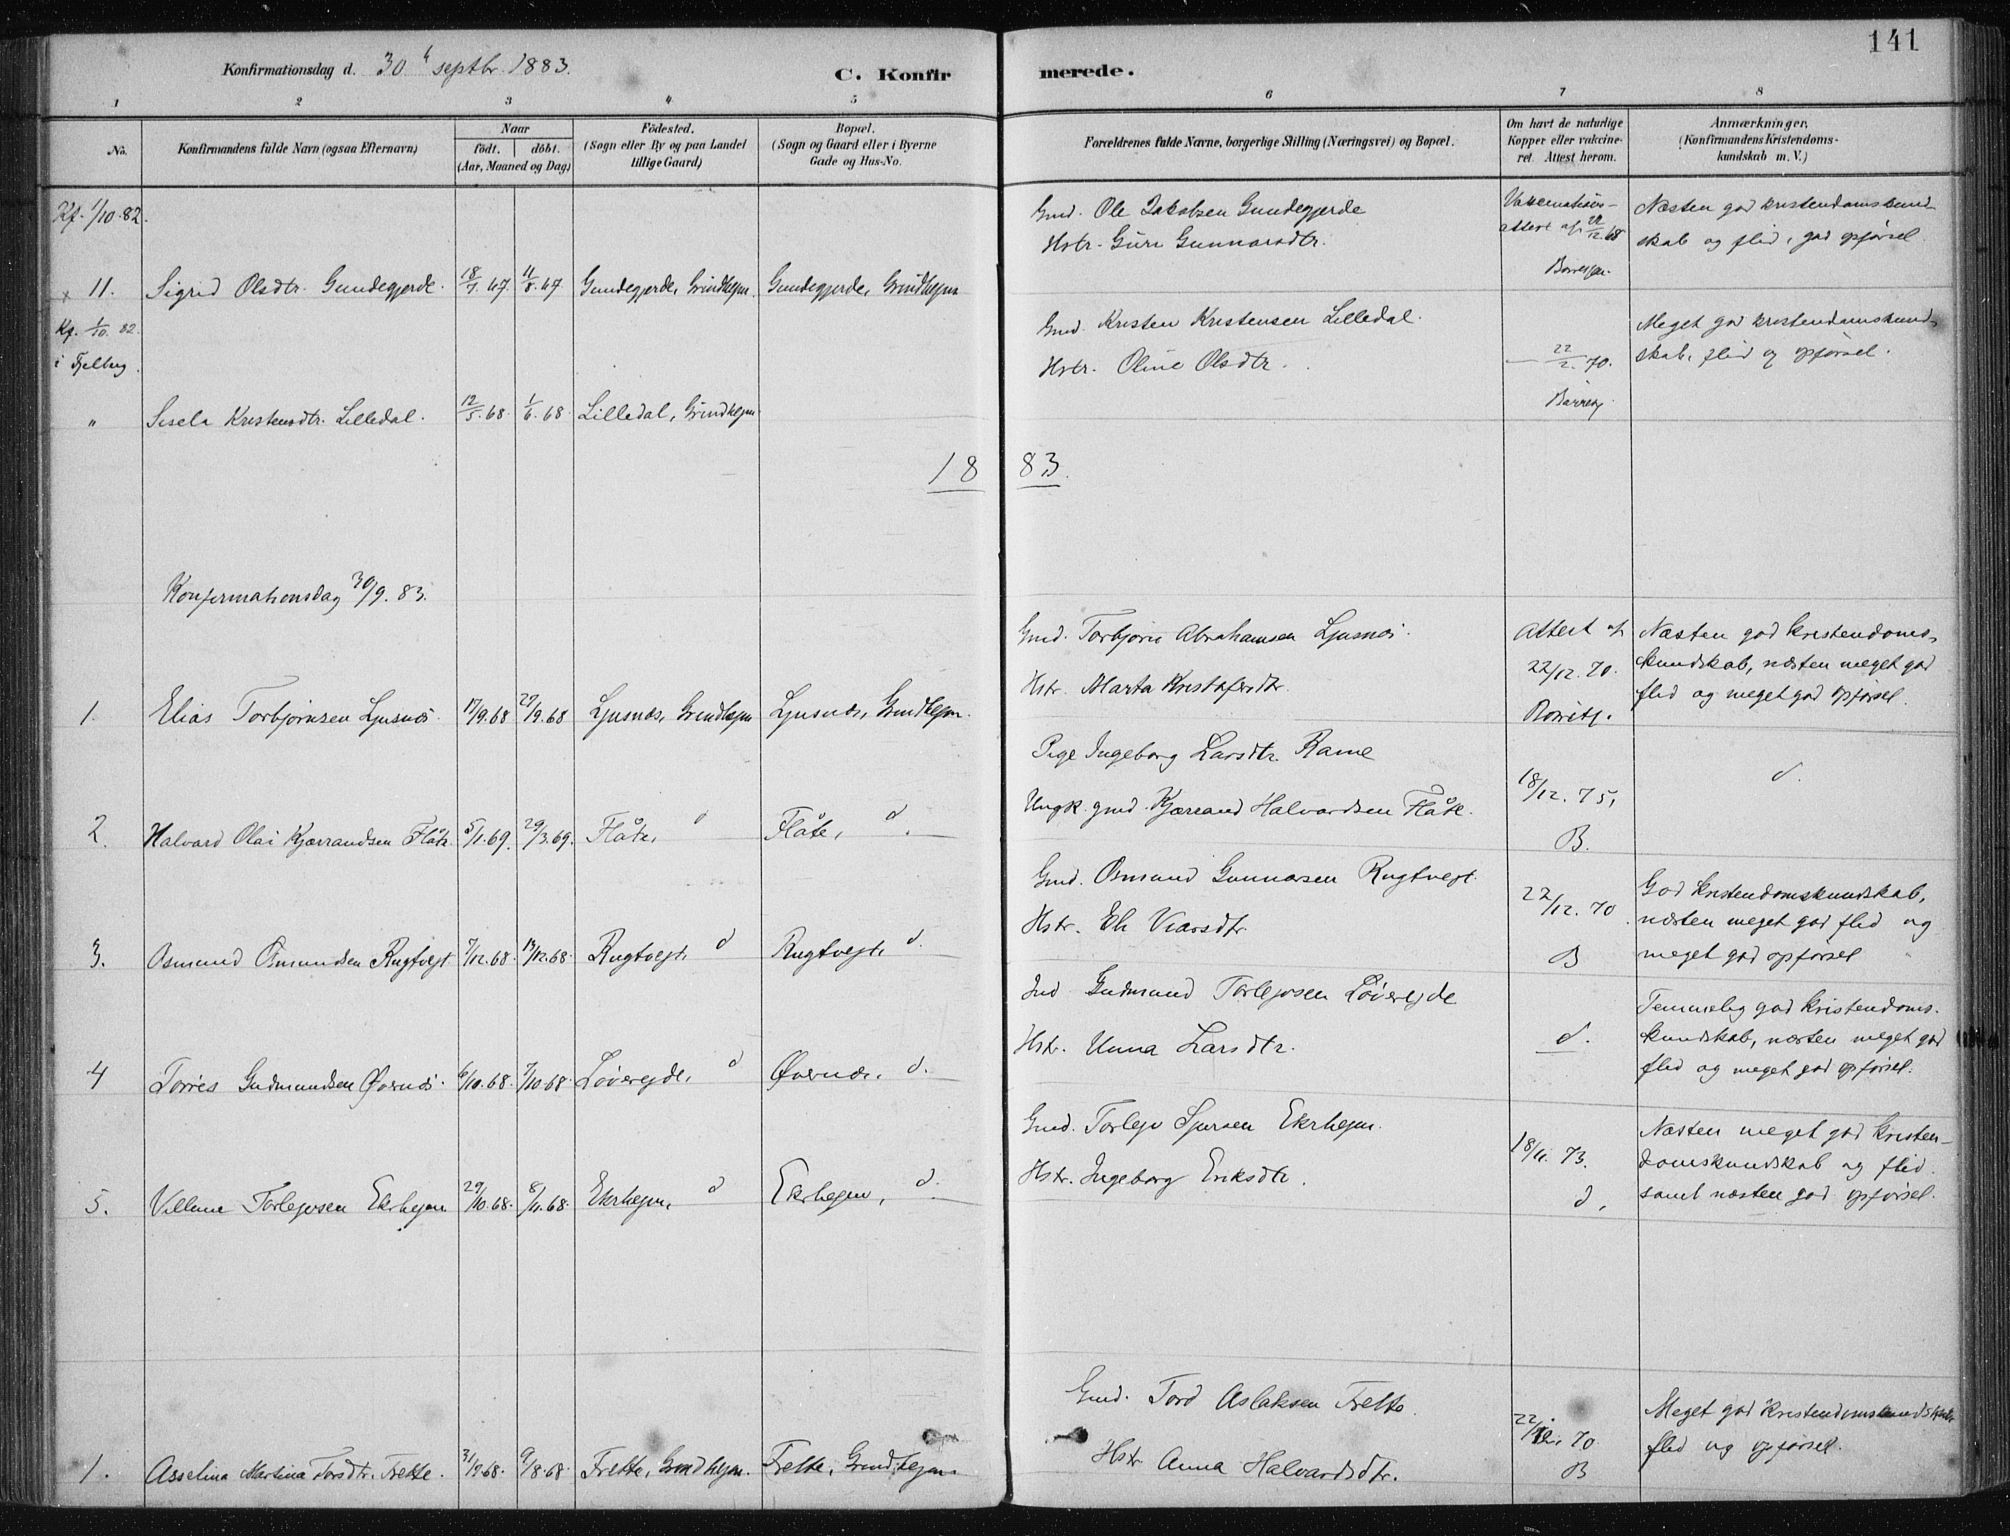 141
Konfirmationsdag d. 30 septbr. 1883.
C. Konfirmerede.
1 2 3 4 5 6 7 8
No.
Konfirmandens fulde Navn (ogsaa Efternavn)
Naar
födt. döbt.
(Aar, Maaned og Dag)
Födested.
(Sogn eller By og paa Landet
tillige Gaard)
Bopæl.
(Sogn og Gaard eller i Byerne
Gade og Hus-No.
Forældrenes fulde Navne, borgerlige Stilling (Næringsvei) og Bopæl.
Om havt de naturlige
Kopper eller vakcine-
ret. Attest herom.
Anmærkninger.
(Konfirmandens Kristendoms-
kundskab m. V.)
Kf. 1/10.82.
x 11. Sigrid Olsdtr. Gundegjerde. 18/7.67 11/8.67 Gundegjerde, Grindhejm. Gundegjerde, Grindhejm
Gmd. Ole Jakobsen Gundegjerde
Hstr. Guri Gunnarsdtr.
Vakcinations-
attest af 22/12.68
Næsten god kristendomskund-
skab og flid, god opførsel.
Kf. 1/10.82.
i Fjelberg.
" Sisela Kristensdtr. Lilledal. 12/5.68. 1/6.68 Lilledal, Grindhejm
Gmd. Kristen Kristensen Lilledal.
Hstr. Oline Olsdtr.
— 22/2.70.
Meget god kristendomskund-
skab, flid og opførsel.
1883.
Konfirmationsdag 30/9.83.
1. Elias Torbjørnsen Ljusnes. 17/9.68 27/9.68 Ljusnes, Grindhejm Ljusnes, Grindhejm.
Gmd. Torbjørn Abrahamsen Ljusnes.
Hstr. Marta Kristofersdtr.
Attest af
22/12.70.
Næsten god kristendoms-
kundskab, næsten meget god
flid og meget god opførsel.
2. Halvard Olai Kjærrandsen Flåte. 5/1.69. 29/3.69. Flåte, d Flåte, d.
Pige Ingeborg Larsdtr. Rame
Ungk. gmd. Kjærrand Halvardsen Flåte.
18/12.75,
B.
d.
3. Osmund Osmundsen Rugtvejt 7/12.68. 13/12.68. Rugtvejt, d Rugtvejt, d.
Gmd. Osmund Gunnarsen Rugtvejt.
Hstr. Eli Vearsdtr.
22/12.70.
B
God kristendomskundskab,
næsten meget god flid og
meget god opførsel
4 Torres Gudmundsen Øvernes. 6/10.68. 7/10.68 Løverejde, d Øvernes. d.
Ind Gudmund Torlejvsen Løverejde
Hstr. Unna Larsdtr.
d.
Temmelig god kristendoms-
kundskab, næsten meget god
flid og meget god opførsel.
5. Villum Torlejvsen Ekrhejm 29/10.68. 8/11.68. Ekrhejm, d Ekrhejm, d.
Gmd. Torlejv Sjursen Ekrhejm.
Hstr. Ingeborg Eriksdtr.
18/11.73.
d.
Næsten meget god kristen-
domskundskab og flid.
samt næsten god opførsel.
1. Asselina Martina Torsdtr. Frette. 31/7.68. 9/8.68 Frette, Grindhejm. Frette, Grindhejm
Gmd. Tord Aslaksen Frette.
Hstr. Anna Halvardsdtr.
22/12.70
B
Meget god kristendomskundskab
flid og opførsel.